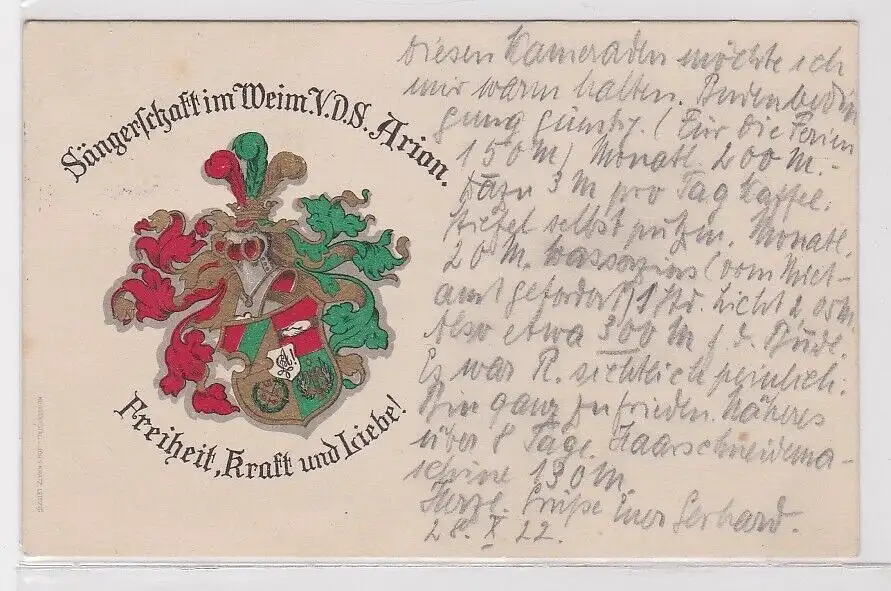 Sängerschaft im Weim. V.D.S. Arion.
Freiheit, Kraft und Liebe!
diesen Kameraden möchte ich
mir warm halten. Budenbedin
gung günstg. (Für die Ferien
150 M) Monatl. 200 M.-
Dazu 3 M pro Tag Kaffee.
Stiefel selbst putzen. Monatl.
20 M. Wasserzins (vom Miet-
amt gefordert) 1 Std. Licht 2,05 M.
Also etwa 300 M f. d. Bude.
Es war R. sichtlich peinlich.
Bin ganz zufrieden. Näheres
über 8 Tage. Haarschneidema-
schine 130 M.
Herzl. Grüße Euer Gerhard.
28. X 22.